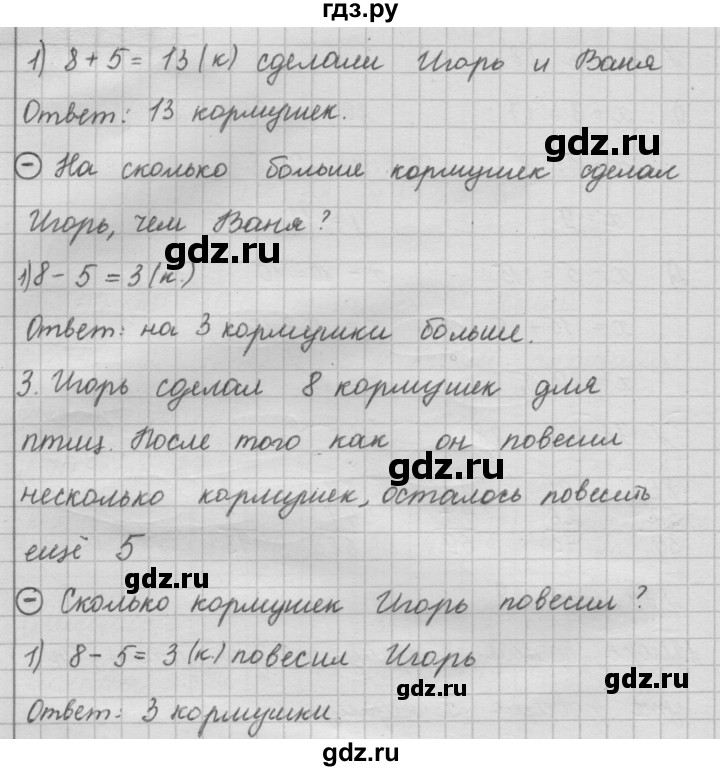 гдз.ру
1) 8 + 5 = 13 (к) сделали Игорь и Ваня
Ответ: 13 кормушек.
gdz.ru
⊖ На сколько больше кормушек сделал
Игорь, чем Ваня?
gdz.ru
1) 8 - 5 = 3 (к.)
Ответ: на 3 кормушки больше.
gdz.ru
3. Игорь сделал 8 кормушек для
птиц. После того как он повесил
gdz.ru
несколько кормушек, осталось повесить
ещё 5
gdz.ru
⊖ Сколько кормушек Игорь повесил?
1) 8 - 5 = 3 (к.) повесил Игорь
gdz.ru
gdz.ru
Ответ: 3 кормушки.
gdz.ru